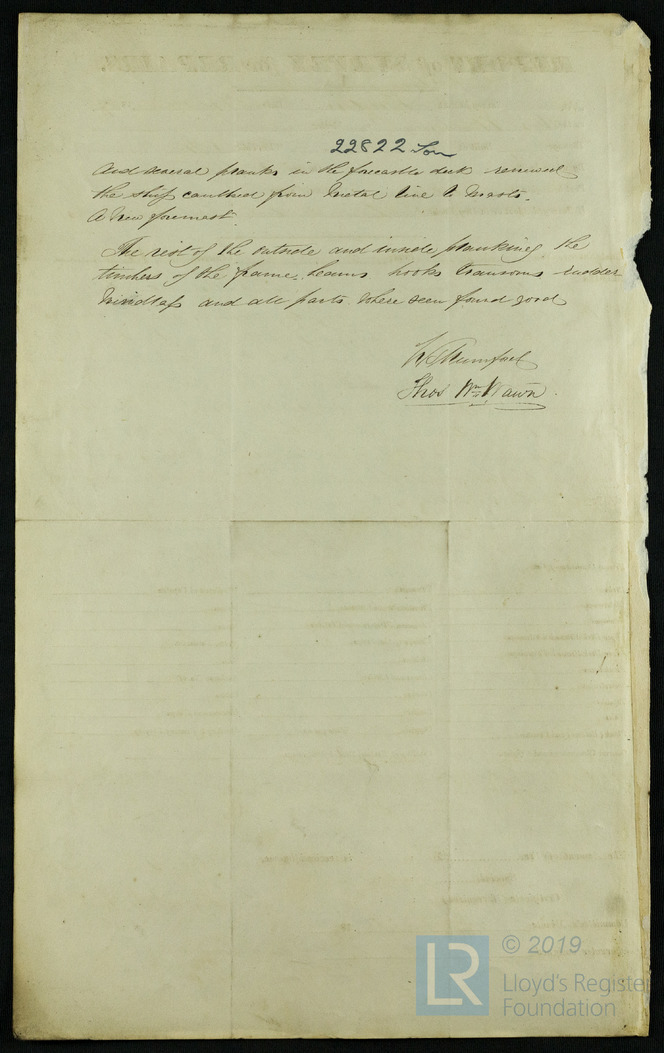 22822 Lon
and several planks in the forecastle deck renewed
the ship caulked from metal line to
A New foremast.
The rest of the outside and inside planking, the
timbers of the frame, beams hooks transoms rudder
windlass and all parts where seen found good
Mumford
Thos Wm Wawn
© 2019
LR
Lloyd's Register
Foundation